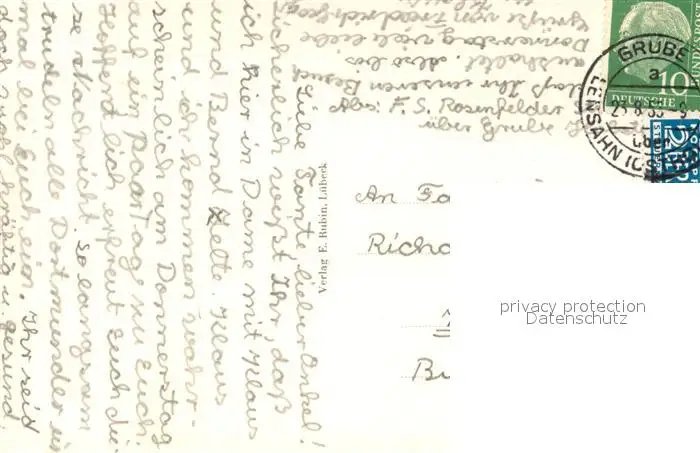 Liebe Tante, lieber Onkel!
Sicherlich wißt Ihr, daß
ich hier in Dame mit Klaus
und Bernd zelte. Klaus
und ich kommen wahr-
scheinlich am Donnerstag
auf ein paar Tage zu Euch.
Hoffentlich erfreut Euch die-
se Nachricht. So langsam
trudeln also alle Dortmunder
mal bei Euch ein. Ihr seid
doch wohl kräftig u. gesund,
daß Ihr unseren Besuch
aushaltet. Also bis
Donnerstag viele liebe
Grüße von Friedrich
Abs: F. S. Rosenfelder
über Grube
Verlag E. Rubin, Lübeck
An Fa
Richa
Bu
GRUBE
a
über
LENSAHN (OSTH
10
DEUTSCHE
BUNDESPOST
2
privacy protection
Datenschutz